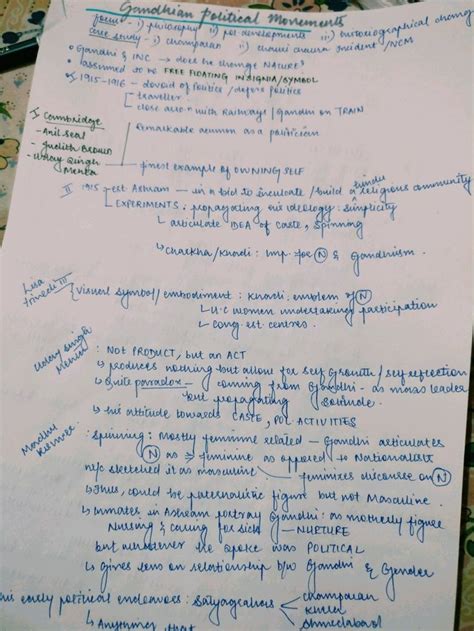 Gandhian Political Movements
focus - i) philosophy ii) pol developments iii) historiographical
case study - i) champaran ii) chauri chaura incident / NCM
• Gandhi & INC → does he change NATURE?
• assumed to be FREE FLOATING INSIGNIA/SYMBOL
I 1915-1916 - devoid of politics
traveller
close with Railways / Gandhi on TRAIN
Cambridge
- Anil Seal
- Judith Brown
- Uday Singh Mehta
Remarkable acumen as a politician
finest example of OWNING SELF
II 1915 - est Ashram - in a bid to inculcate / build a hindu religious community
EXPERIMENTS: propagating his ideology: simplicity
↳ articulate IDEA of CASTE, Spinning
↳ charkha / khadi: imp. for N & Gandhism.
Lisa Trivedi
III visual symbol / embodiment: khadi: emblem of N
↳ U.C women undertaking participation
↳ Cong est. centres.
Uday Singh Mehta
: NOT PRODUCT, but an ACT
↳ produces nothing but allow for self growth / self reflection
↳ quite paradox - coming from Gandhi - as mass leader
but propagating solitude.
↳ his attitude towards CASTE, POL ACTIVITIES
Madhu Kishwar
: Spinning: mostly feminine related - Gandhi articulates
N as feminine as opposed to Nationalist
n/c sketched it as masculine feminizes discourse on N
↳ Thus, could be paternalistic figure but not Masculine.
↳ Inmates in Ashram portray Gandhi: as motherly figure
Nursing & caring for sick - NURTURE
but whenever he spoke was POLITICAL
↳ gives lens on relationship b/w Gandhi & Gender
early political endeavors: Satyagrahas
champaran
Kheda
Ahmedabad